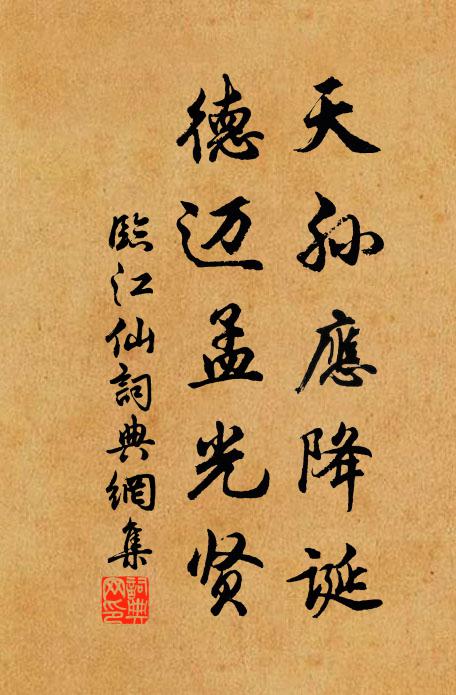 天孙應降誕
德迈孟光贤
臨江仙詞典網集
詞典网印